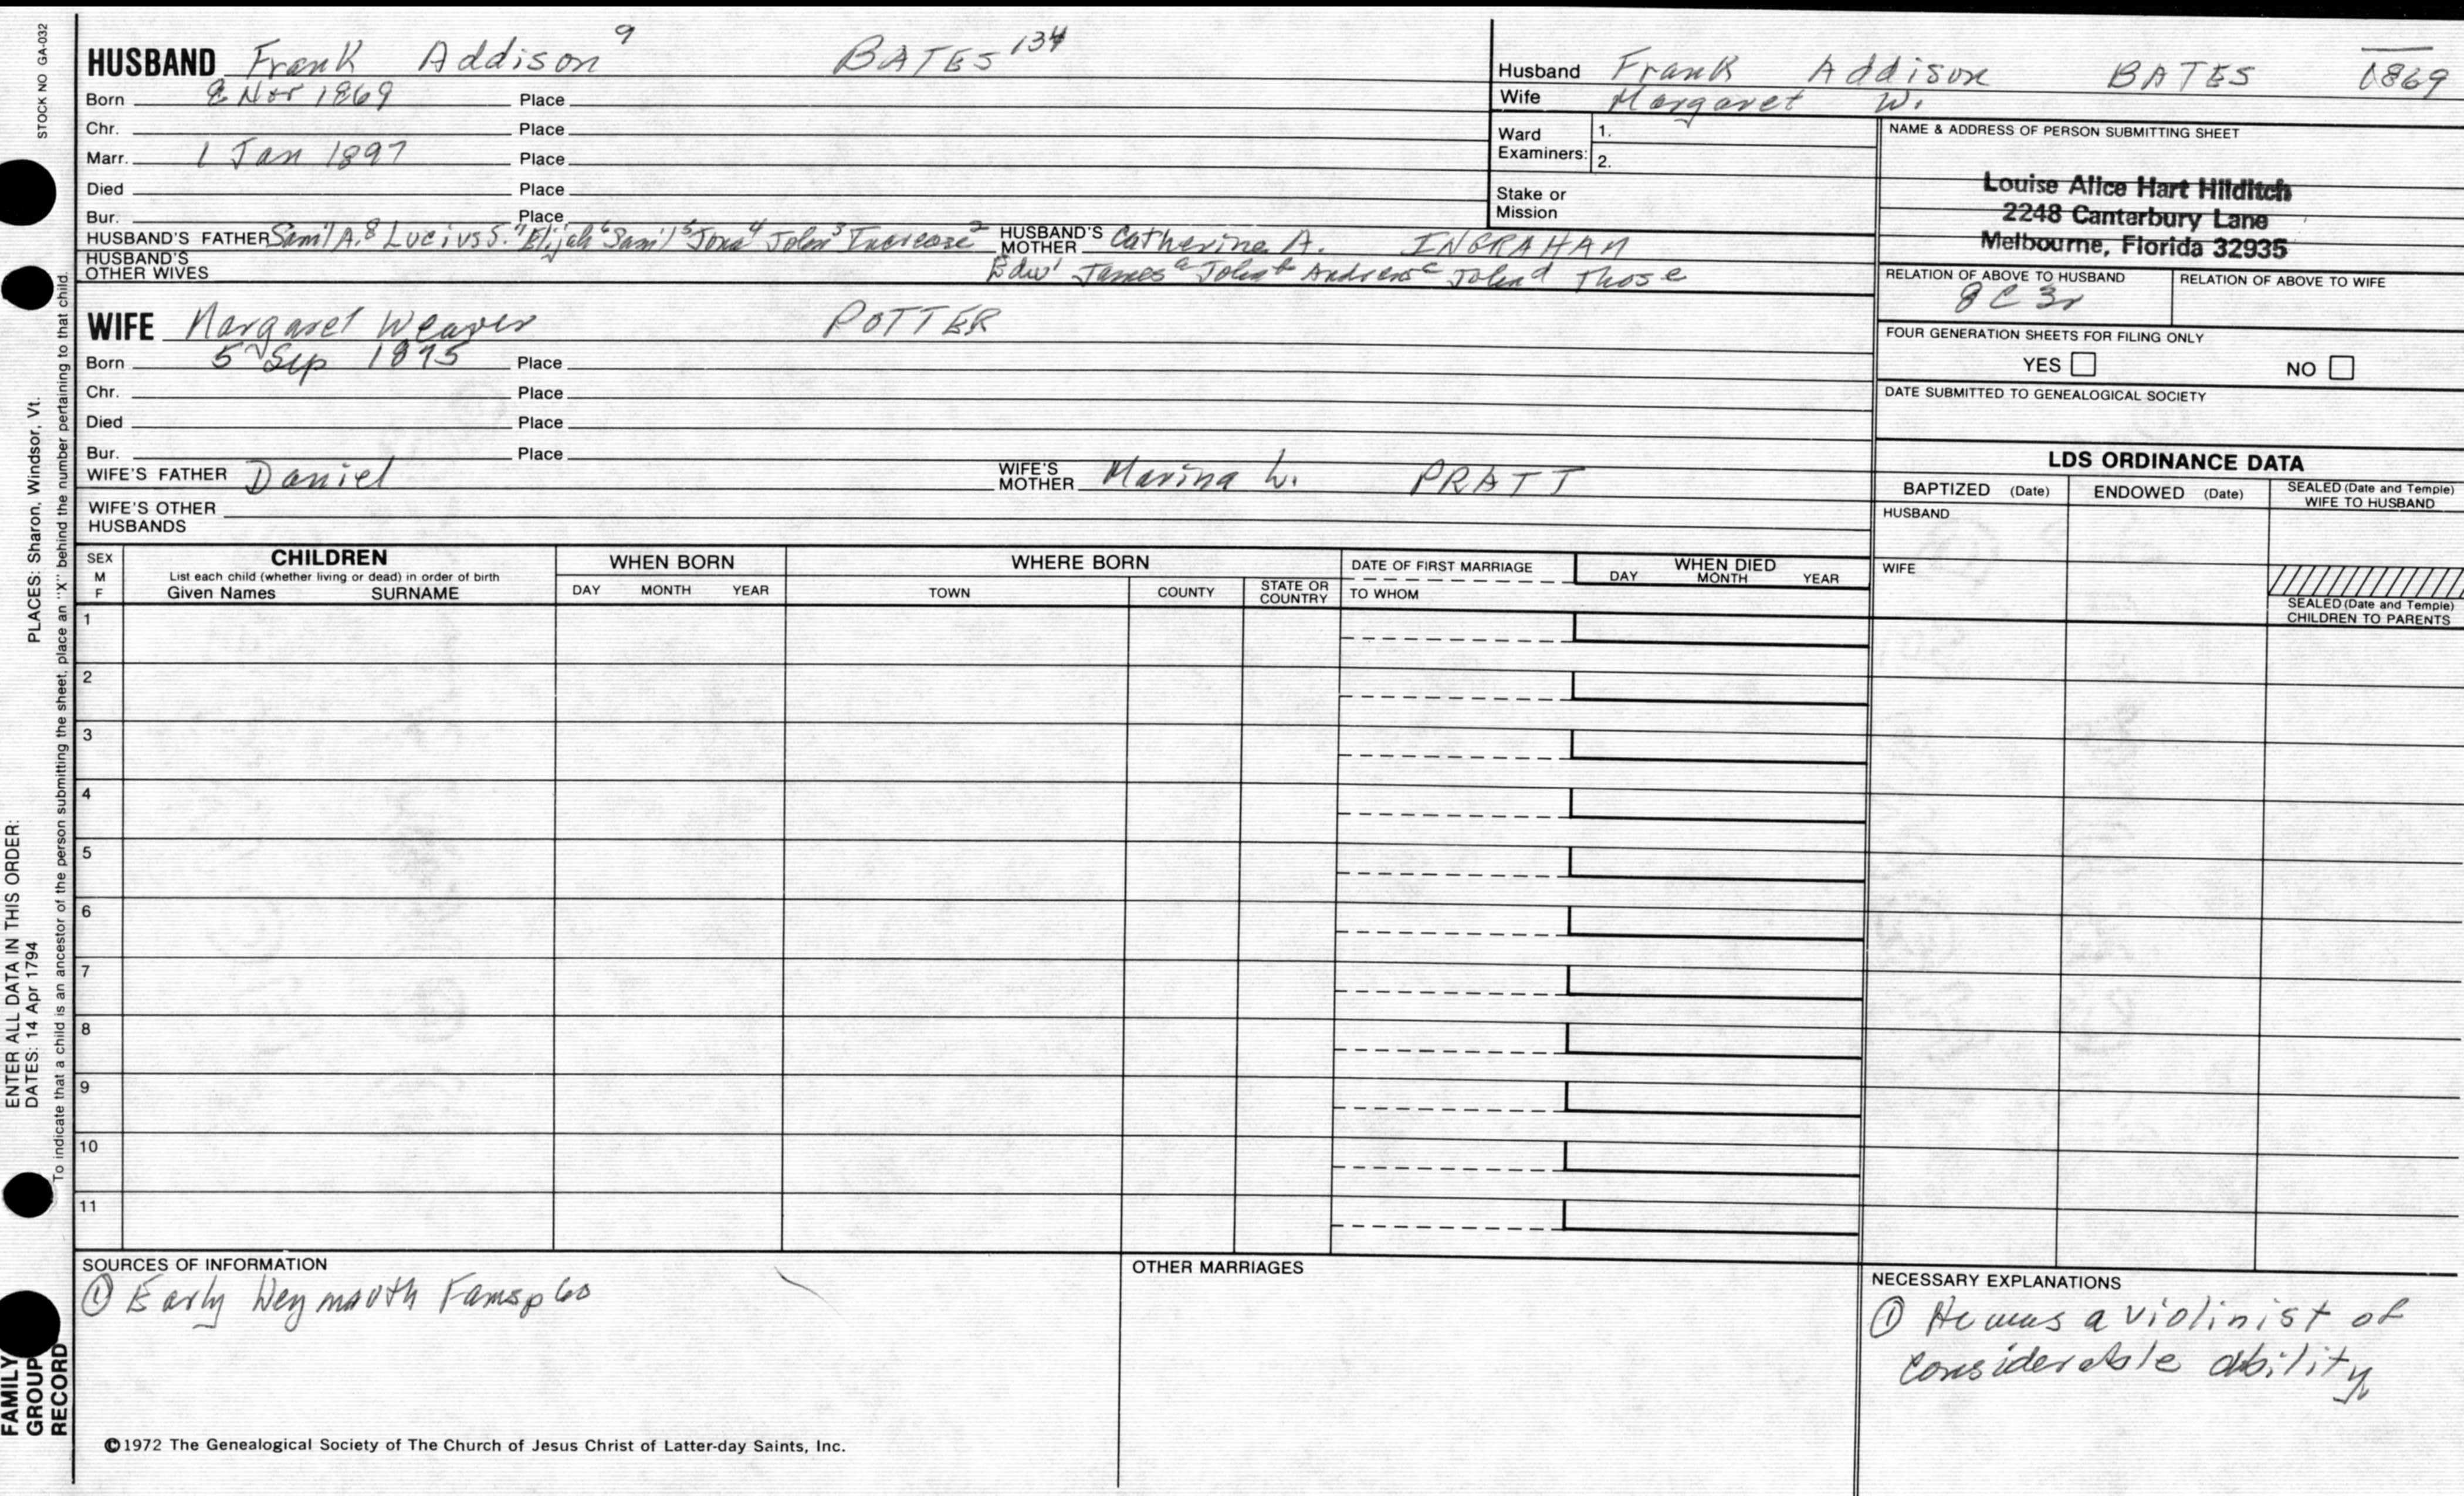 STOCK NO GA-032
HUSBAND Frank Addison⁹ BATES¹³⁴
Born 8 Nov 1869 Place
Chr. Place
Marr. 1 Jan 1897 Place
Died Place
Bur. Place
HUSBAND'S FATHER Sam'l A.⁸ Lucius S.⁷ Elijah⁶ Sam'l⁵ Jona⁴ John³ Increase² Edw¹ HUSBAND'S MOTHER Catherine A. INGRAHAM
HUSBAND'S OTHER WIVES
James ᵃ John ᵇ Andrew ᶜ John ᵈ Thos ᵉ
WIFE Margaret Weaver POTTER
Born 5 Sep 1875 Place
Chr. Place
Died Place
Bur. Place
WIFE'S FATHER Daniel WIFE'S MOTHER Marina L. PRATT
WIFE'S OTHER HUSBANDS
Husband Frank Addison BATES 1869
Wife Margaret W.
Ward Examiners: 1.
2.
Stake or Mission
NAME & ADDRESS OF PERSON SUBMITTING SHEET
Louise Alice Hart Hilditch
2248 Canterbury Lane
Melbourne, Florida 32935
RELATION OF ABOVE TO HUSBAND RELATION OF ABOVE TO WIFE
8C3r
FOUR GENERATION SHEETS FOR FILING ONLY
YES NO
DATE SUBMITTED TO GENEALOGICAL SOCIETY
LDS ORDINANCE DATA
BAPTIZED (Date) ENDOWED (Date) SEALED (Date and Temple) WIFE TO HUSBAND
HUSBAND
WIFE
SEALED (Date and Temple) CHILDREN TO PARENTS
SEX M F
CHILDREN
List each child (whether living or dead) in order of birth
Given Names SURNAME
WHEN BORN
DAY MONTH YEAR
WHERE BORN
TOWN COUNTY STATE OR COUNTRY
DATE OF FIRST MARRIAGE
TO WHOM
WHEN DIED
DAY MONTH YEAR
1
2
3
4
5
6
7
8
9
10
11
SOURCES OF INFORMATION
① Early Weymouth Fams p 60
OTHER MARRIAGES
NECESSARY EXPLANATIONS
① He was a violinist of
considerable ability
©1972 The Genealogical Society of The Church of Jesus Christ of Latter-day Saints, Inc.
ENTER ALL DATA IN THIS ORDER:
DATES: 14 Apr 1794 PLACES: Sharon, Windsor, Vt.
To indicate that a child is an ancestor of the person submitting the sheet, place an "X" behind the number pertaining to that child.
FAMILY
GROUP
RECORD